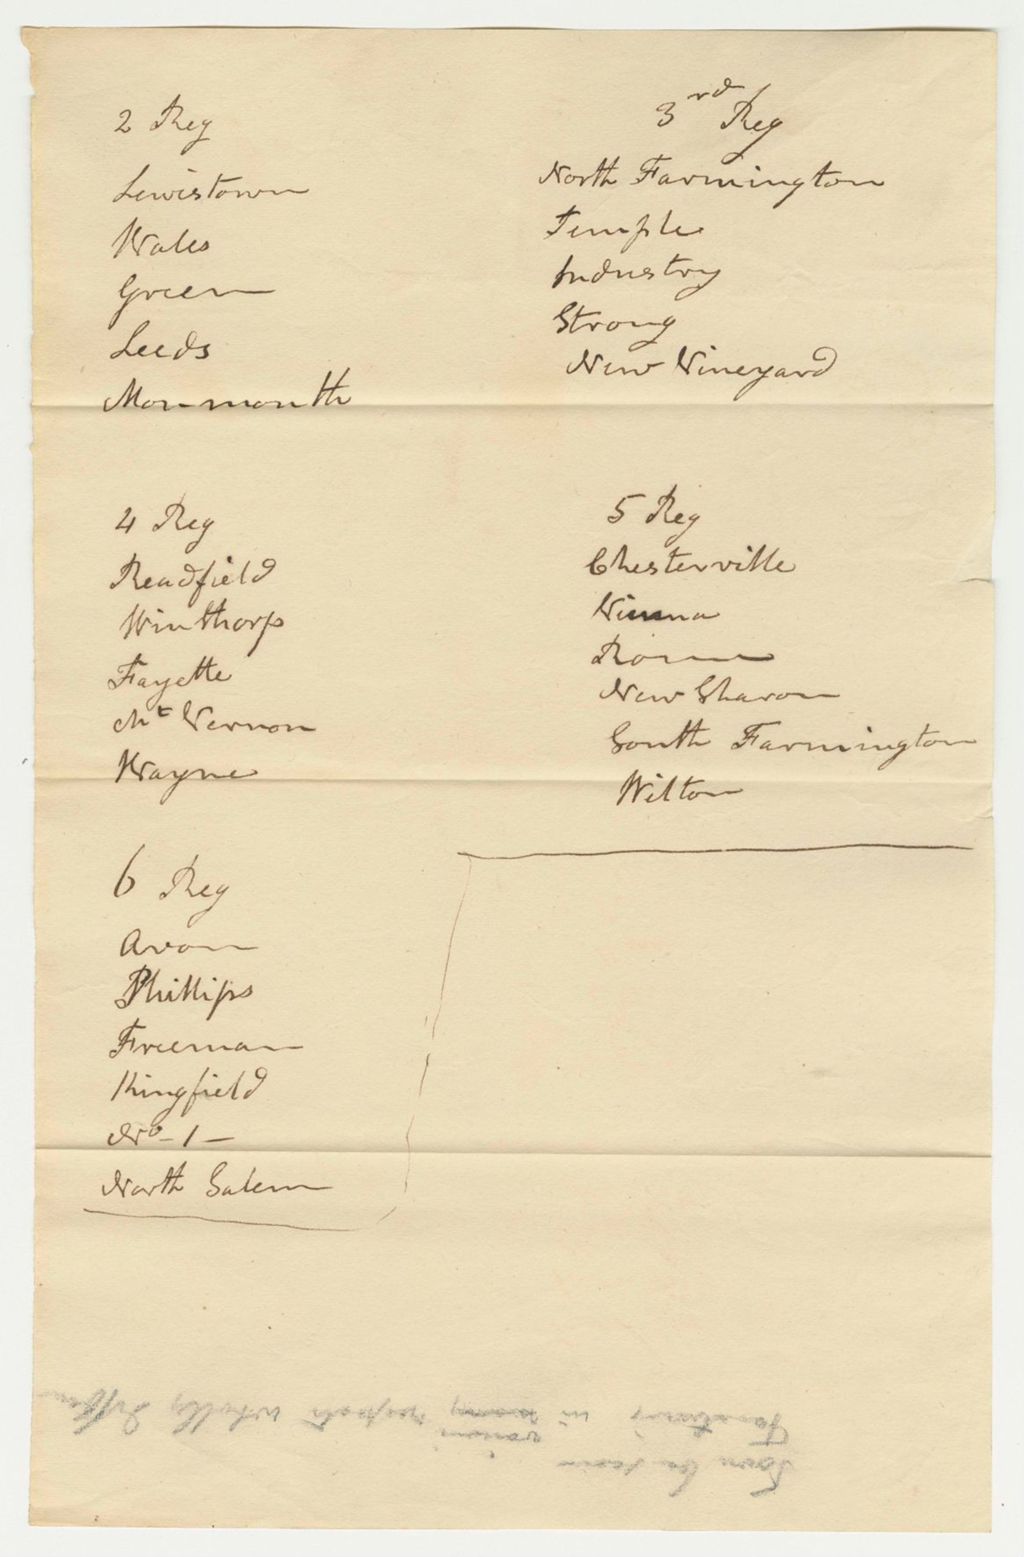 2 Reg
Lewistown
Wales
Green
Leeds
Monmouth
3rd Reg
North Farmington
Temple
Industry
Strong
New Vineyard
4 Reg
Readfield
Winthorp
Fayette
Mt Vernon
Wayne
5 Reg
Chesterville
Vienna
Rome
New Sharon
South Farmington
Wilton
6 Reg
Avon
Phillips
Freeman
Kingfield
No - 1 -
North Salem
various
in many respects wholly